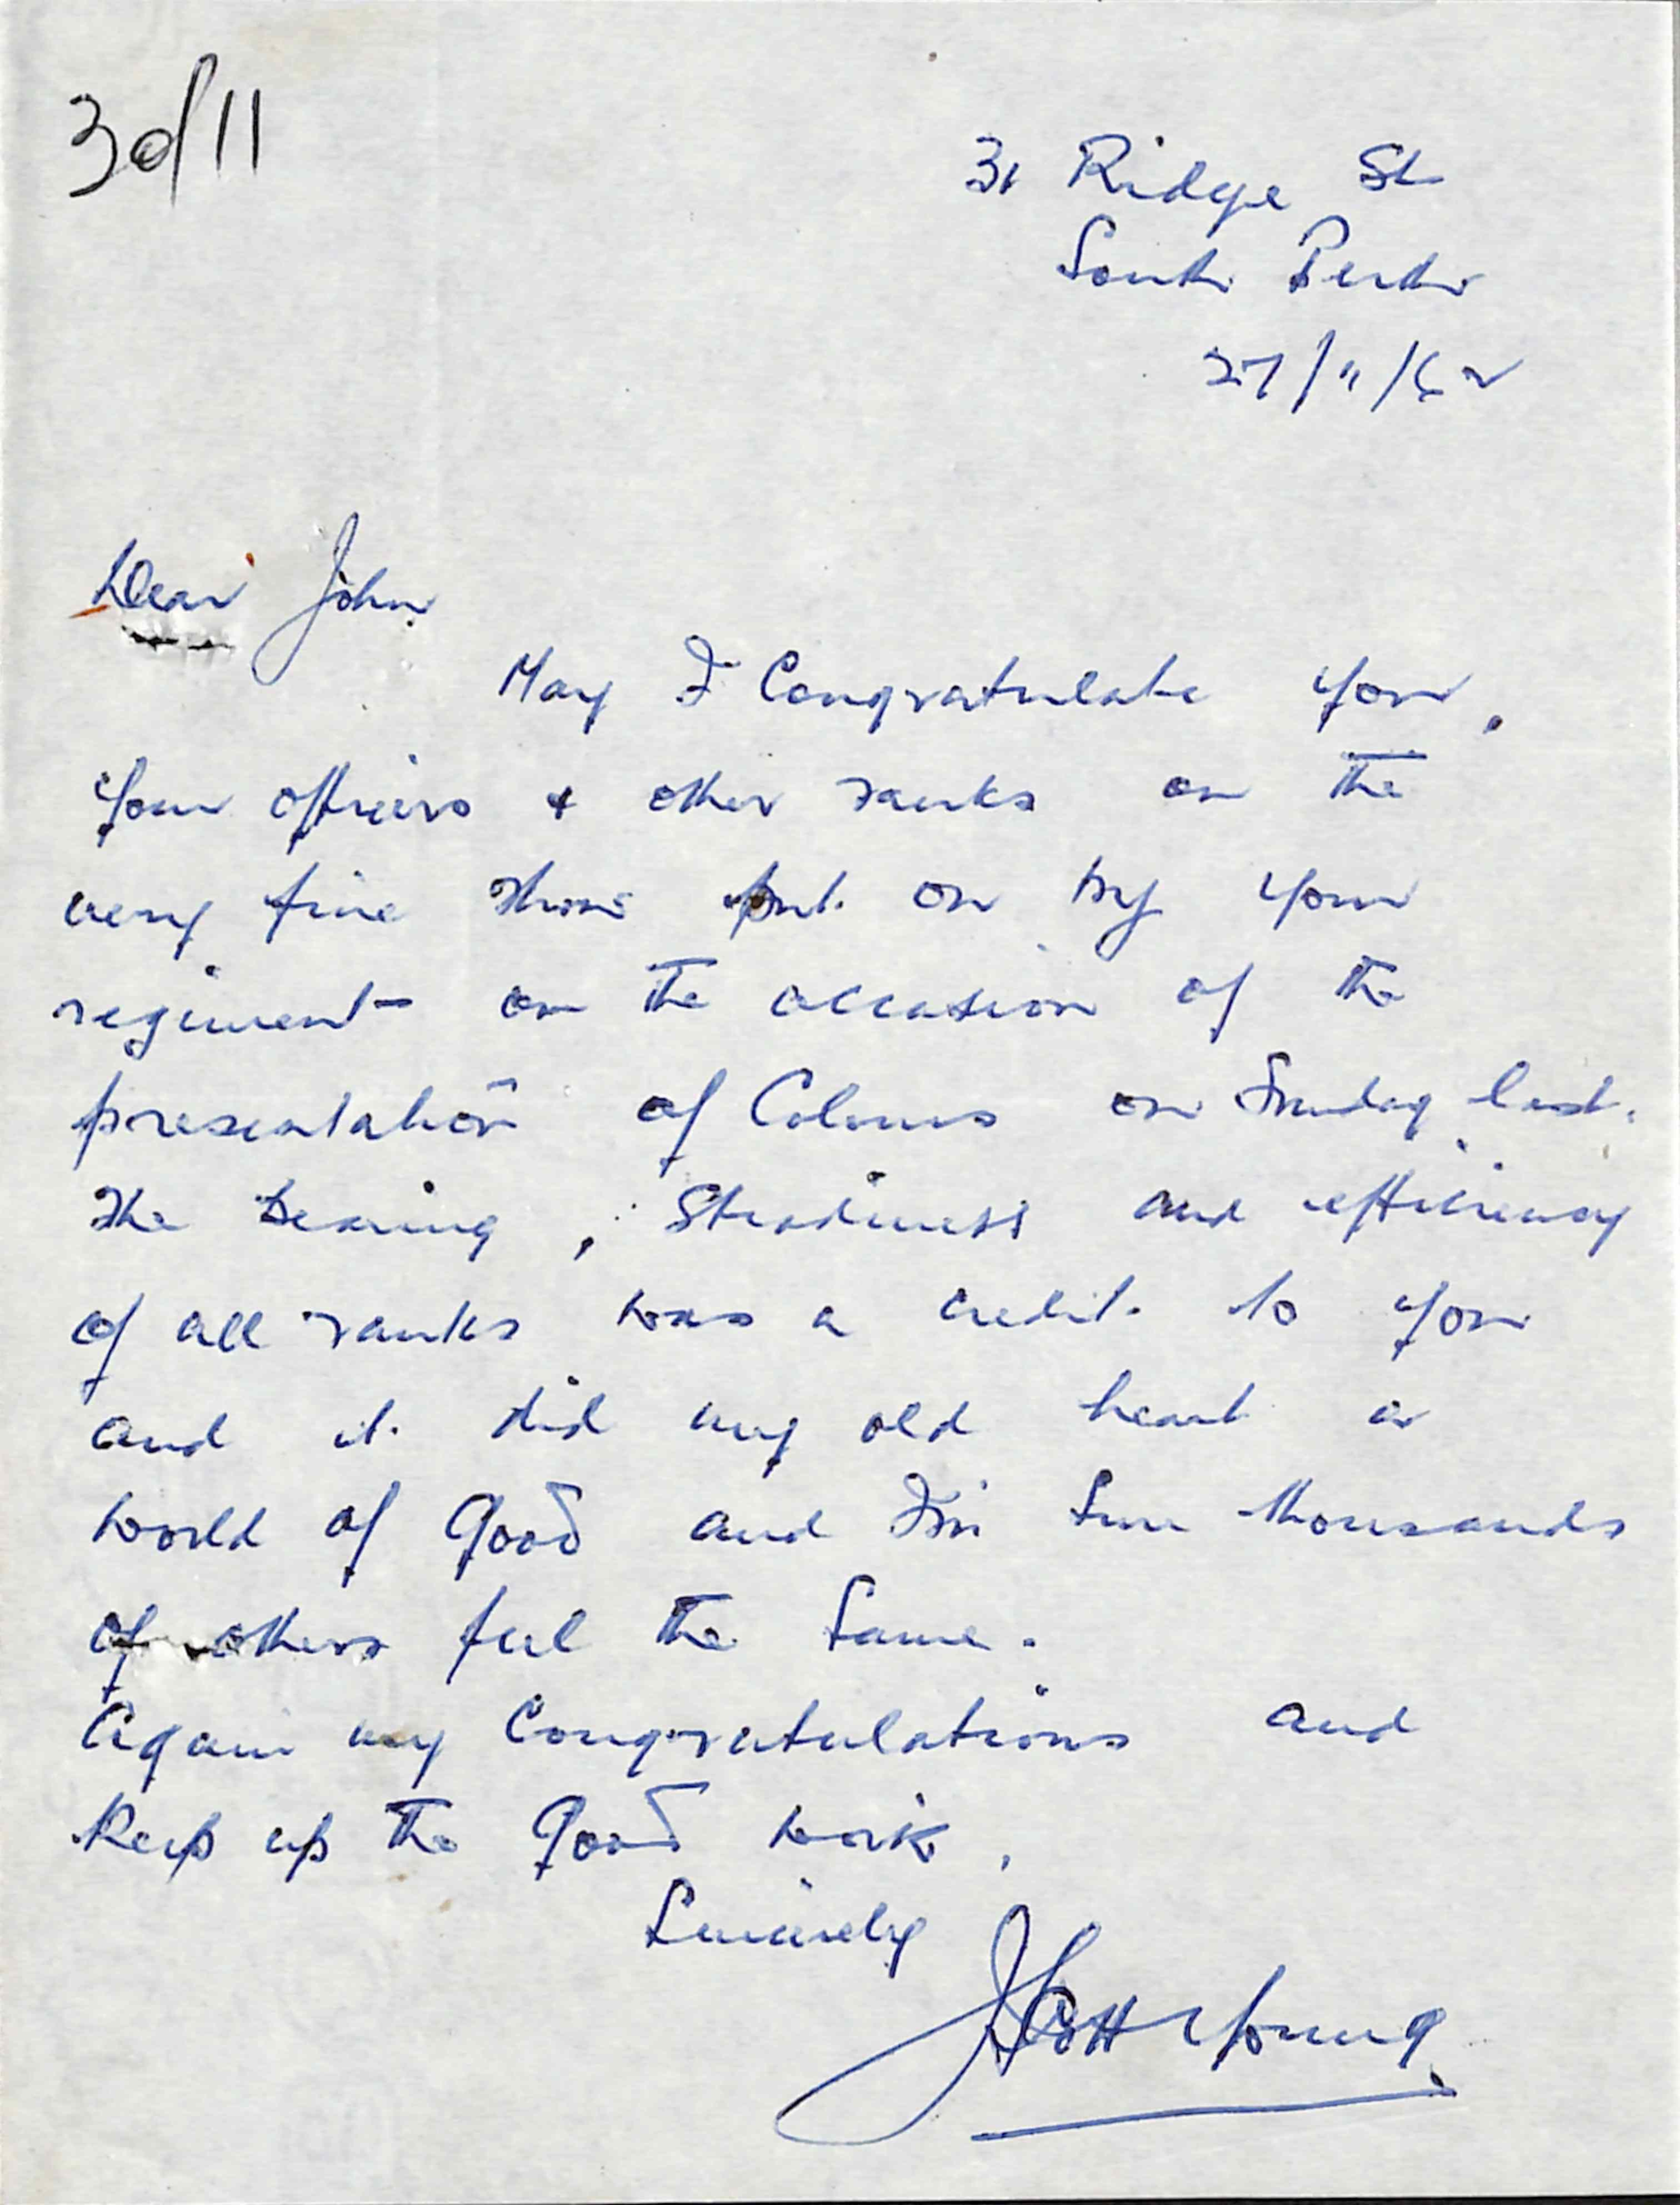 3 of 11
31 Ridge St
South Perth
27/11/62
Dear John
May I Congratulate you,
Your officers & other ranks on the
very fine show put on by your
regiment on the occasion of the
presentation of Colours on Sunday last.
The bearing, Steadiness and efficiency
of all ranks was a credit to you
and it did my old heart a
world of good and I'm sure thousands
of others feel the same.
Again my Congratulations and
keep up the good work,
Sincerely
J Scott Young